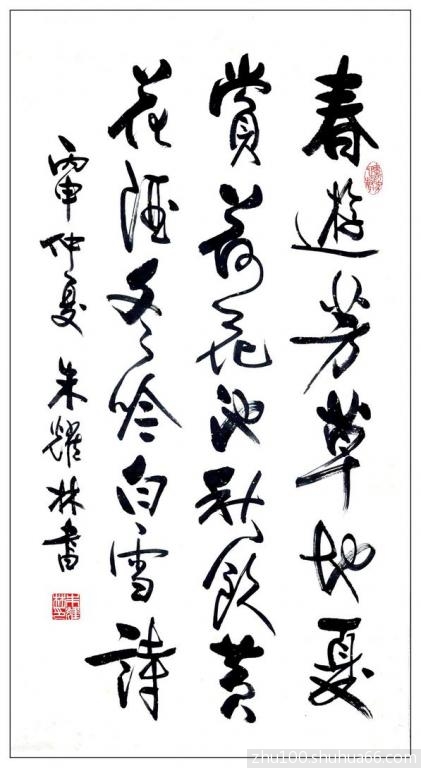 春遊芳草地夏
賞荷花池秋飲黄
花酒冬吟白雪詩
丙申仲夏朱耀林書
zhu100.shuhua66.com